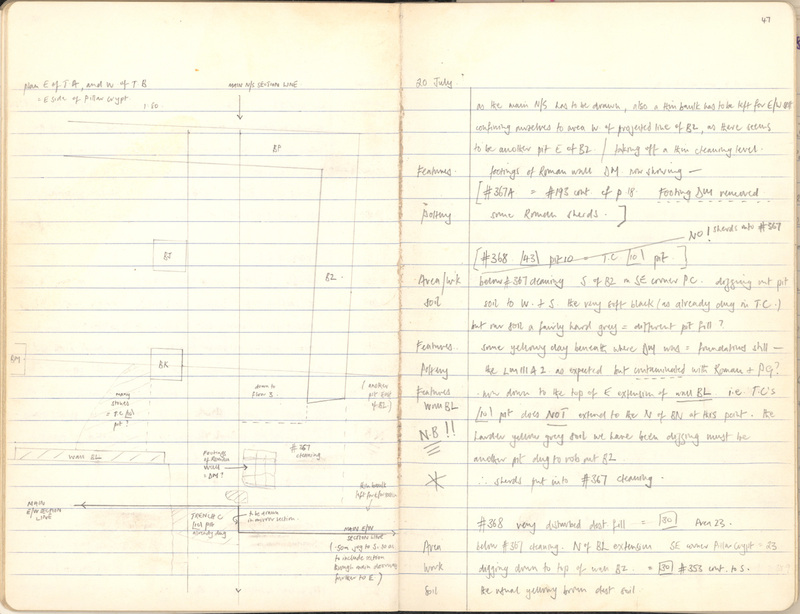 plan E of T A, and W of T B
= E side of Pillar Crypt
1:50.
MAIN N/S SECTION LINE
BP
BJ
BZ.
BM
BK
many
stones
= T.C.
pit?
down to
Floor 3.
(another
pit E of
of BZ)
WALL BL
Footings
of Roman
wall
= DM?
#367
cleaning
thin baulk
left for E/W
MAIN
E/W SECTION
LINE
TRENCH C
pit
already dug
to be drawn
in mirror section.
MAIN E/W
SECTION LINE
(.50m jog to S.
to include section
through main doorway
further to E)
47
20 July
as the main N/S has to be drawn, also a thin baulk has to be left for E/W
confining ourselves to area W of projected line of BZ, as there seems
to be another pit E of BZ. / taking off a thin cleaning level.
Features footings of Roman wall DM now showing —
[#367A = #193 cont. of p 18. Footing DM removed
Pottery some Roman sherds. ]
NO! sherds into #367
[#368 /43/ pit 10 = T.C. /10/ pit. ]
Area/Wk below #367 cleaning S of BZ in SE corner P.C. digging out pit
soil soil to W. + S. the very soft black (as already dug in T.C.)
but our soil a fairly hard grey = different pit fill?
Features some yellowy clay beneath where DM was = foundations still —
Pottery the LM III A 2 as expected but contaminated with Roman + PG?
Features now down to the top of E extension of wall BL. i.e. T.C's
Wall BL /10/ pit does NOT extend to the N of BN at this point. the
N.B!! harder yellow grey soil we have been digging must be
another pit dug to rob out BZ
* ∴ sherds put into #367 cleaning.
#368 very disturbed dest fill = 30 Area 23.
Area below #367 cleaning. N of BL extension SE corner Pillar Crypt = 23
Work digging down to top of wall BZ. = 30 #353 cont. to S.
Soil the usual yellowy brown dest soil.